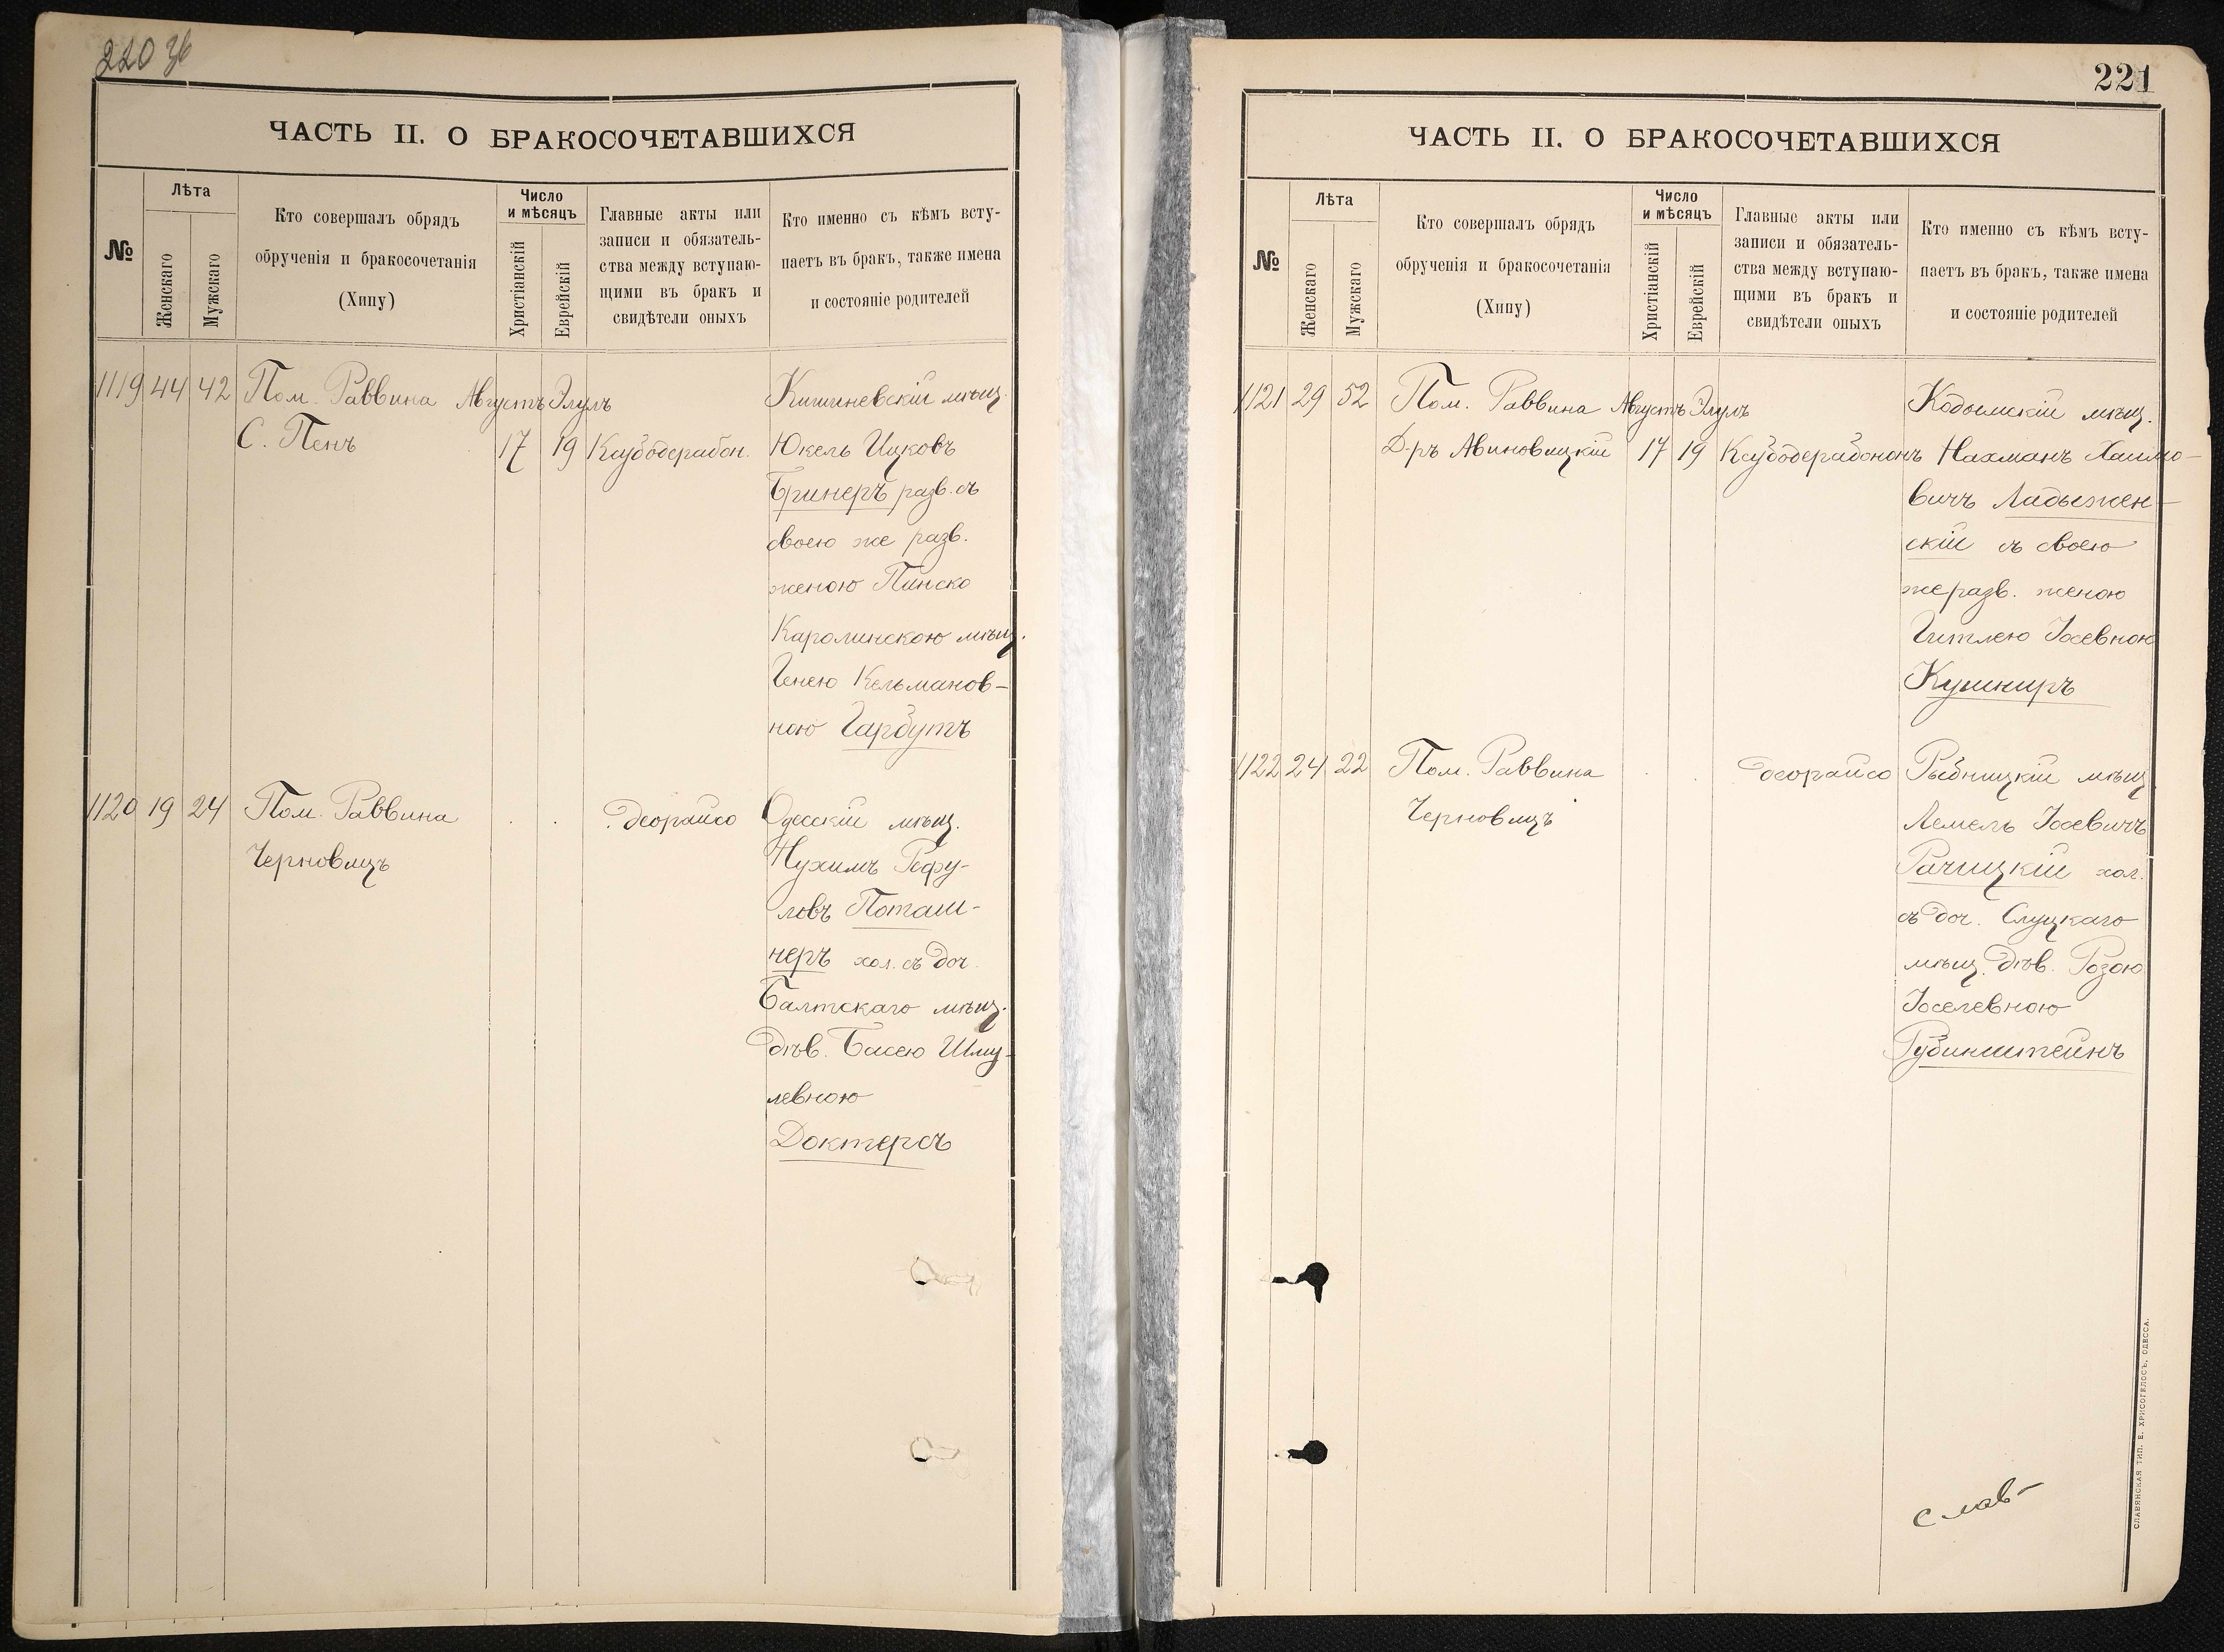 220 об
ЧАСТЬ II. О БРАКОСОЧЕТАВШИХСЯ
№
Лѣта
Женскаго
Мужскаго
Кто совершалъ обрядъ
обрученія и бракосочетанія
(Хипу)
Число
и мѣсяцъ
Христіанскій
Еврейскій
Главные акты или
записи и обязатель-
ства между вступаю-
щими въ бракъ и
свидѣтели оныхъ
Кто именно съ кѣмъ всту-
паетъ въ бракъ, также имена
и состояніе родителей
1119 44 42 Пом. Раввина Августъ Элулъ Кишиневскій мѣщ.
С. Пенъ 17 19 Ксубодерабон. Юкель Ицковъ
Бринеръ разв. съ
своею же разв.
женою Пинско
Каролинскою мѣщ.
Генею Кельманов-
ною Гарбутъ
1120 19 24 Пом. Раввина . . деорайсо Одесскій мѣщ.
Черновицъ Нухимъ Рефу-
ловъ Поташ-
неръ хол. съ доч.
Балтскаго мѣщ.
дѣв. Басею Шму-
левною
Доктерсъ
221
ЧАСТЬ II. О БРАКОСОЧЕТАВШИХСЯ
№
Лѣта
Женскаго
Мужскаго
Кто совершалъ обрядъ
обрученія и бракосочетанія
(Хипу)
Число
и мѣсяцъ
Христіанскій
Еврейскій
Главные акты или
записи и обязатель-
ства между вступаю-
щими въ бракъ и
свидѣтели оныхъ
Кто именно съ кѣмъ всту-
паетъ въ бракъ, также имена
и состояніе родителей
1121 29 52 Пом. Раввина Августъ Элулъ Кодымскій мѣщ.
Д-ръ Авиновицкій 17 19 Ксубодерабононъ Нахманъ Хаимо-
вичъ Ладыжен-
скій съ своею
же разв. женою
Гитлею Іосевною
Кушниръ
1122 24 22 Пом. Раввина . . деорайсо Рыбницкій мѣщ.
Черновицъ Лемель Іосевичъ
Рачицкій хол.
съ доч. Слуцкаго
мѣщ. дѣв. Розою
Іоселевною
Рубинштейнъ
СЛАВЯНСКАЯ ТИП. Е. ХРИСОГЕЛОСЪ. ОДЕССА.